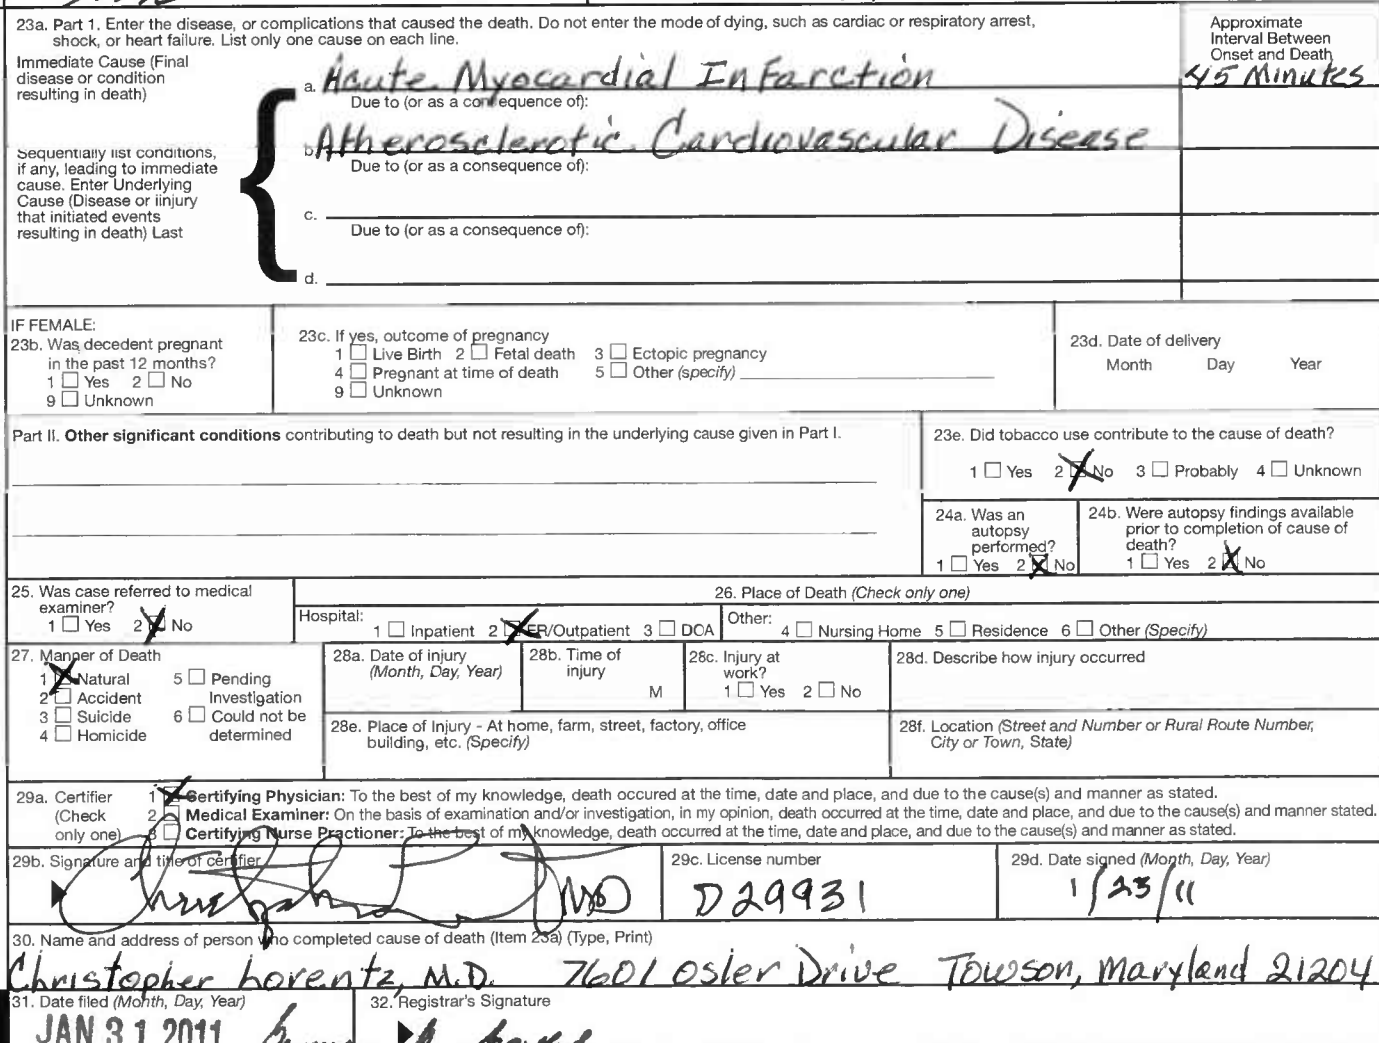 23a. Part 1. Enter the disease, or complications that caused the death. Do not enter the mode of dying, such as cardiac or respiratory arrest,
shock, or heart failure. List only one cause on each line.
Approximate
Interval Between
Onset and Death
Immediate Cause (Final
disease or condition
resulting in death)
a. Acute Myocardial Infarction 45 Minutes
Due to (or as a consequence of):
b. Atherosclerotic Cardiovascular Disease
Due to (or as a consequence of):
Sequentially list conditions,
if any, leading to immediate
cause. Enter Underlying
Cause (Disease or iinjury
that initiated events
resulting in death) Last
c.
Due to (or as a consequence of):
d.
IF FEMALE:
23b. Was decedent pregnant
in the past 12 months?
1 ☐ Yes 2 ☐ No
9 ☐ Unknown
23c. If yes, outcome of pregnancy
1 ☐ Live Birth 2 ☐ Fetal death 3 ☐ Ectopic pregnancy
4 ☐ Pregnant at time of death 5 ☐ Other (specify)
9 ☐ Unknown
23d. Date of delivery
Month Day Year
Part II. Other significant conditions contributing to death but not resulting in the underlying cause given in Part I.
23e. Did tobacco use contribute to the cause of death?
1 ☐ Yes 2 ☒ No 3 ☐ Probably 4 ☐ Unknown
24a. Was an
autopsy
performed?
1 ☐ Yes 2 ☒ No
24b. Were autopsy findings available
prior to completion of cause of
death?
1 ☐ Yes 2 ☒ No
25. Was case referred to medical
examiner?
1 ☐ Yes 2 ☒ No
26. Place of Death (Check only one)
Hospital: 1 ☐ Inpatient 2 ☒ ER/Outpatient 3 ☐ DOA
Other: 4 ☐ Nursing Home 5 ☐ Residence 6 ☐ Other (Specify)
27. Manner of Death
1 ☒ Natural 5 ☐ Pending
2 ☐ Accident Investigation
3 ☐ Suicide 6 ☐ Could not be
4 ☐ Homicide determined
28a. Date of injury
(Month, Day, Year)
28b. Time of
injury
M
28c. Injury at
work?
1 ☐ Yes 2 ☐ No
28d. Describe how injury occurred
28e. Place of Injury - At home, farm, street, factory, office
building, etc. (Specify)
28f. Location (Street and Number or Rural Route Number,
City or Town, State)
29a. Certifier
(Check
only one)
1 ☒ Certifying Physician: To the best of my knowledge, death occured at the time, date and place, and due to the cause(s) and manner as stated.
2 ☐ Medical Examiner: On the basis of examination and/or investigation, in my opinion, death occurred at the time, date and place, and due to the cause(s) and manner stated.
3 ☐ Certifying Nurse Practioner: To the best of my knowledge, death occurred at the time, date and place, and due to the cause(s) and manner as stated.
29b. Signature and title of certifier
MD
29c. License number
D29931
29d. Date signed (Month, Day, Year)
1/23/11
30. Name and address of person who completed cause of death (Item 23a) (Type, Print)
Christopher Lorentz, M.D. 7601 Osler Drive Towson, Maryland 21204
31. Date filed (Month, Day, Year)
JAN 31 2011
32. Registrar's Signature